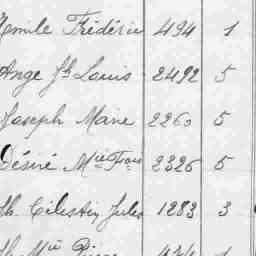 Emile Frédéric 494 1
Ange Jh Louis 2492 5
Joseph Marie 2260 5
Désiré Mie Fçois 2326 5
Jh Célestin Jules 1283 3
Jh Mie